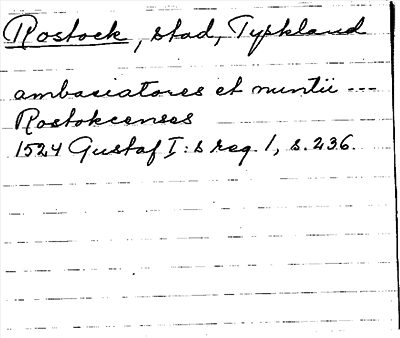 Rostock, stad, Tyskland
ambasiatores et nuntii ---
Rostokcenses
1524 Gustaf I:s reg. 1, s. 236.